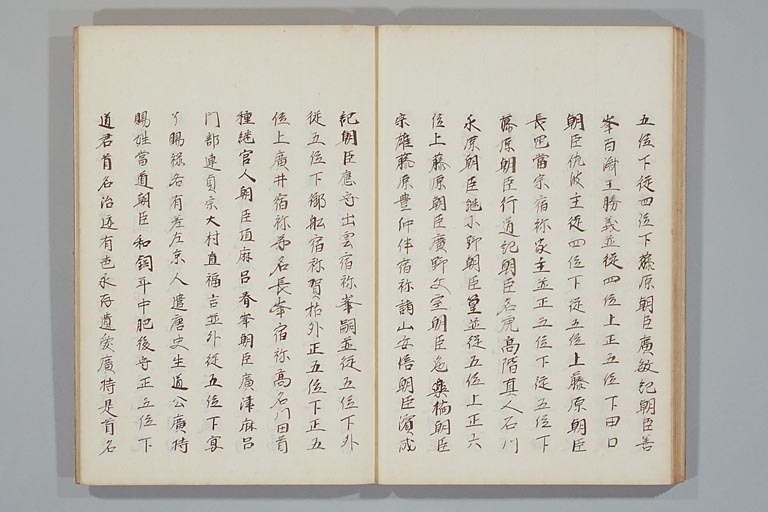 五位下従四位下藤原朝臣廣敏紀朝臣善
岑百濟王勝義並従四位上正五位下田口
朝臣佐波主従四位下従五位上藤原朝臣
長岡當宗宿祢家主並正五位下従五位下
藤原朝臣行道紀朝臣名虎高階真人石川
永原朝臣継小野朝臣篁並従五位上正六
位上藤原朝臣廣野文室朝臣危楽橘朝臣
宗雄藤原豊仲伴宿祢諸山安倍朝臣濱成
紀朝臣應守出雲宿祢峯嗣並従五位下外
従五位下御船宿祢賀祜外正五位下正五
位上廣井宿祢弟名長岑宿祢高名門田首
種継官人朝臣頂麻呂春岑朝臣廣津麻呂
門部連貞宗大村直福吉並外従五位下宴
了賜禄各有差左京人遣唐史生道公廣持
賜姓當道朝臣和銅年中肥後守正五位下
道君首名治迹有也永存遺愛廣持是首名